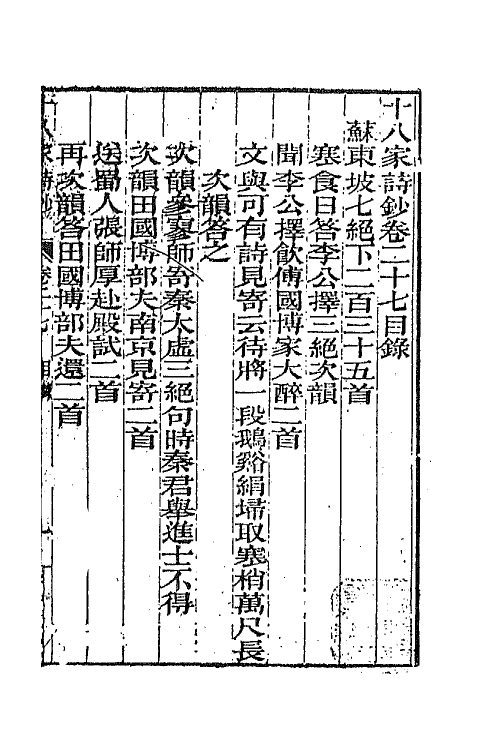 十八家詩鈔卷二十七目錄
蘇東坡七絕下二百三十五首
寒食日答李公擇三絕次韻
聞李公擇飲傅國博家大醉二首
文與可有詩見寄云待將一段鵝谿絹埽取寒梢萬尺長
次韻答之
次韻參寥師寄秦太虛三絕句時秦君舉進士不得
次韻田國博部夫南京見寄二首
送蜀人張師厚赴殿試二首
再次韻答田國博部夫還二首
十八家詩鈔 卷二十七 目錄 一